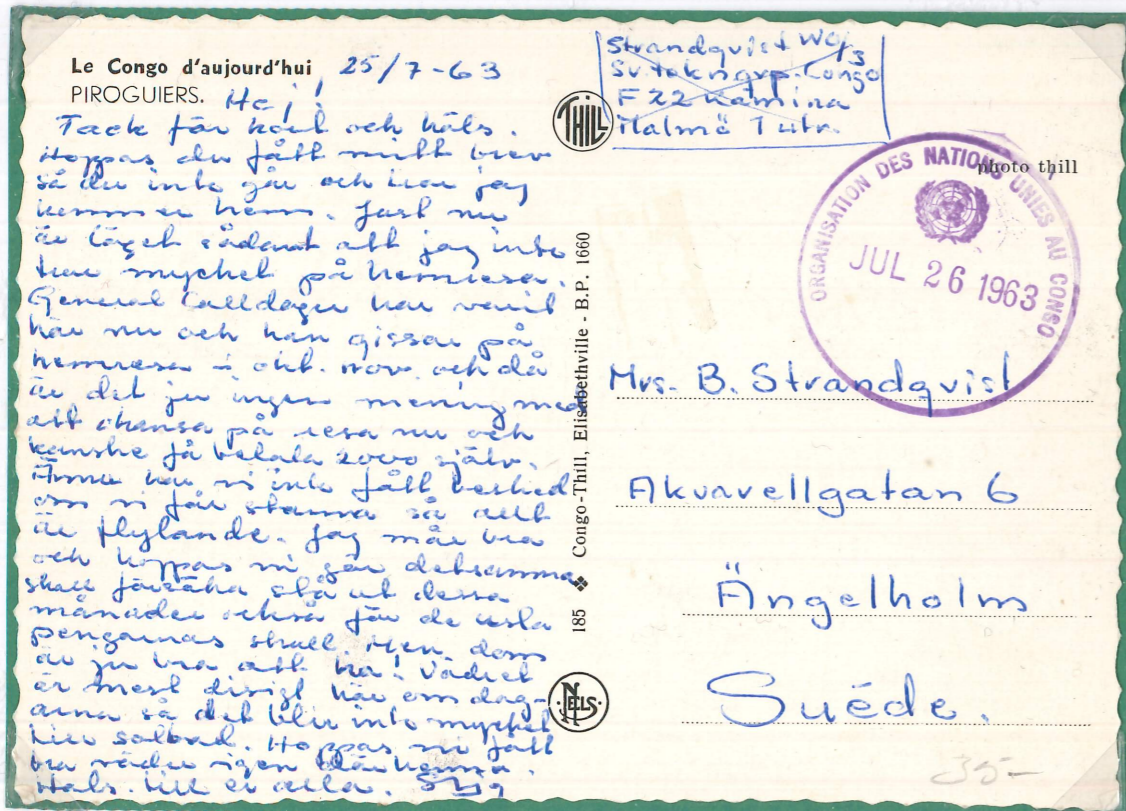 Le Congo d'aujourd'hui
PIROGUIERS.
25/7-63
Hej!
Tack för kort och häls.
Hoppas du fått mitt brev
så du inte går och tror jag
kommer hem. Just nu
är läget sådant att jag inte
tror mycket på hemresa.
General har varit
här nu och han gissar på
hemresa i okt. nov. och då
är det ju ingen mening med
att chansa på resa nu och
kanske få betala 2000 själv.
Ännu har vi inte fått besked
om vi får stanna så allt
är flytande. Jag mår bra
och hoppas ni gör detsamma
skall försöka stå ut dessa
månader också för de usla
pengarnas skull. Men dom
är ju bra att ha! Vädret
är mest disigt här om dag-
arna så det blir inte mycket
till solbad. Hoppas ni fått
bra väder igen där hemma.
Häls. till er alla. Stig
185 ❖ Congo-Thill, Elisabethville - B.P. 1660
THILL
NELS
Strandqvist WO/3
Sv. tekn grp. Congo
F 22 Kamina
Malmö 1 utr.
photo thill
ORGANISATION DES NATIONS UNIES AU CONGO
JUL 26 1963
Mrs. B. Strandqvist
Akvavellgatan 6
Ängelholm
Suéde.
35-